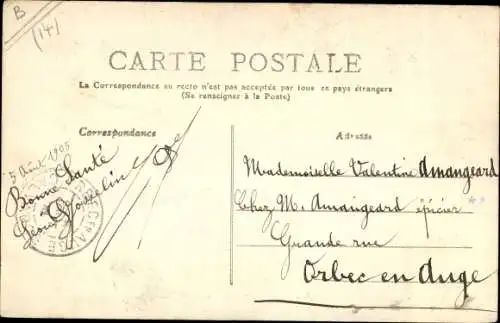 B
(14)
CARTE POSTALE
La Correspondance au recto n'est pas acceptée par tous les pays étrangers
(Se renseigner à la Poste)
Correspondance
Adresse
5 Août 1905
Bonne Santé
Gosselin
Mademoiselle Valentine Amangeard
Chez M. Amangeard épicier
Grande rue
Orbec en Auge